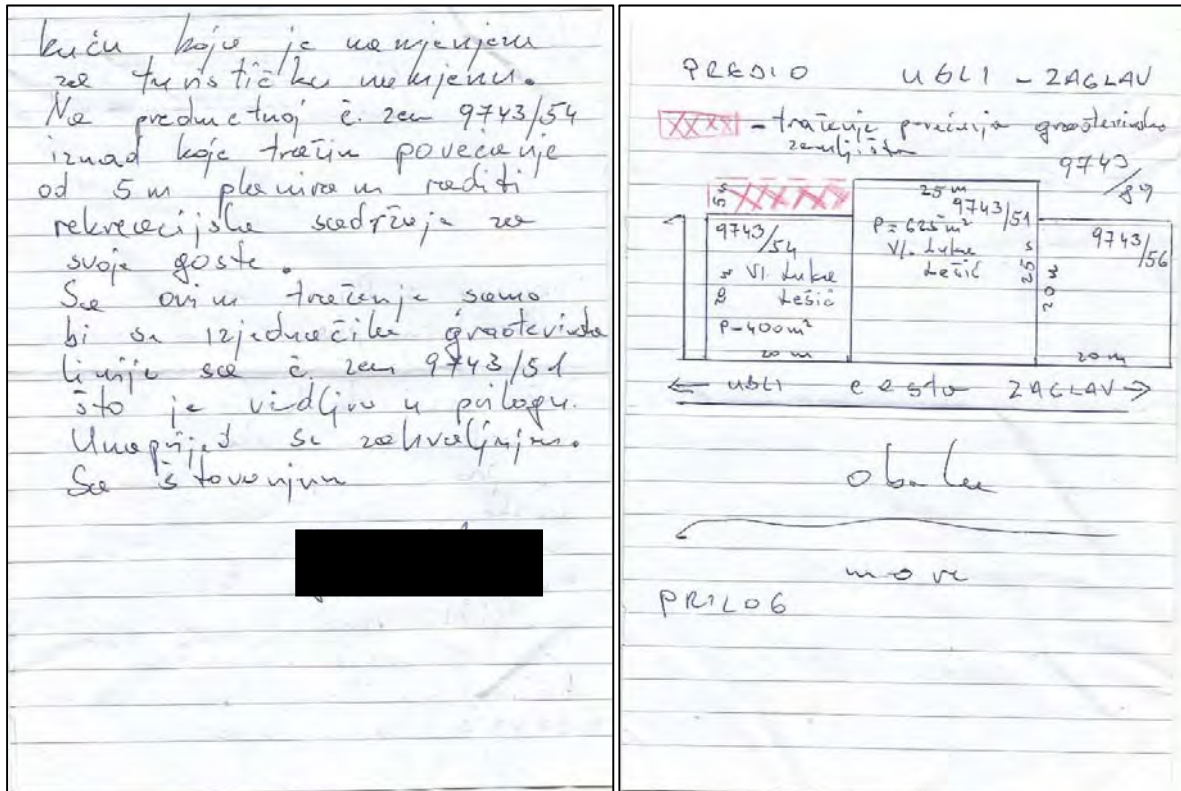 kuću koja je namjenjena
za turističku namjenu.
Na predmetnoj č. zem 9743/54
iznad koje tražim povećanje
od 5 m planiram raditi
rekreacijske sadržaje za
svoje goste.
Sa ovim traženje samo
bi se izjednačila građevinska
linija sa č. zem 9743/51
što je vidljivo u prilogu.
Unaprijed se zahvaljujem.
Sa štovanjem
PREDIO UBLI - ZAGLAV
- traženje povećanja građevinsko
zemljišta
9743
/89
5 m
25 m
9743/51
P = 625 m²
Vl. Luka
Lešić
25 m
9743
/54
Vl. Luka
Lešić
P-400m²
20 m
9743
/56
20 m
20 m
← UBLI cesta ZAGLAV →
obala
more
PRILOG